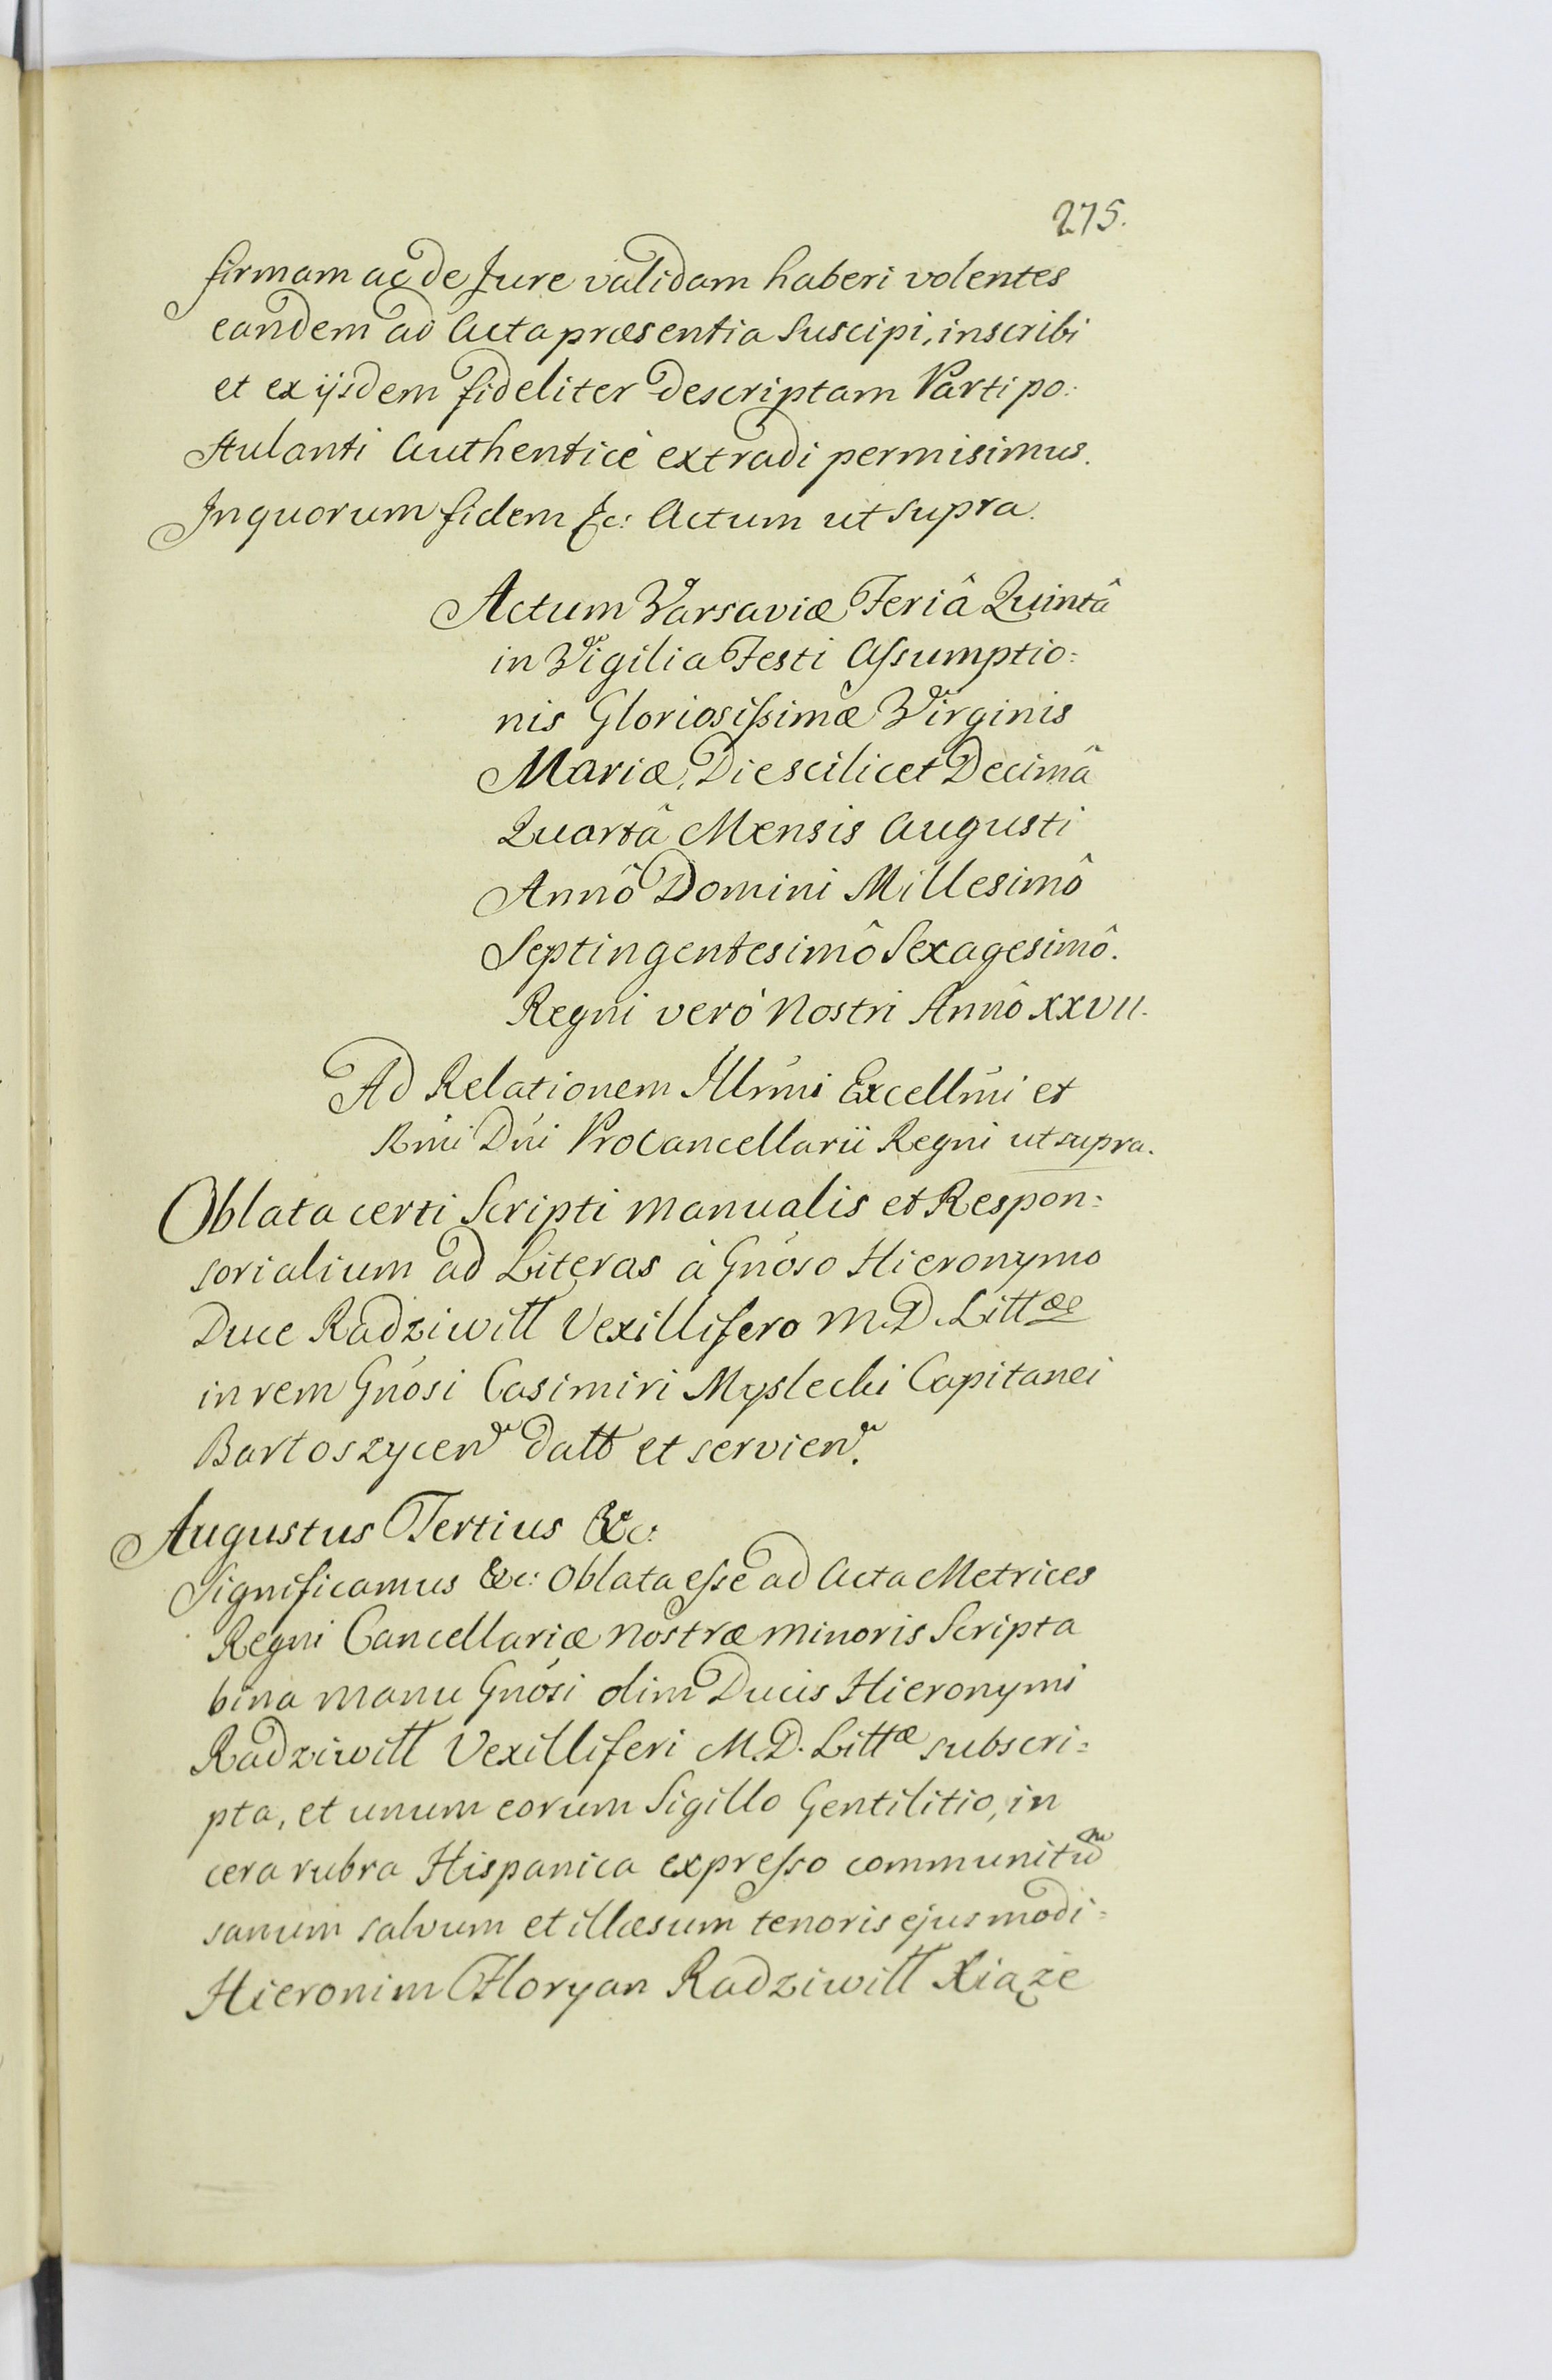 275.
firmam ac de Jure validam haberi volentes
eandem ad Acta præsentia suscipi, inscribi
et ex ijsdem fideliter descriptam Parti po:
stulanti Authenticè extradi permisimus.
In quorum fidem &c: Actum ut supra.
Actum Varsaviæ Feriâ Quintâ
in Vigilia Festi Assumptio:
nis Gloriosissimæ Virginis
Mariæ, Die scilicet Decimâ
Quartâ Mensis Augusti
Annô Domini Millesimô
Septingentesimô Sexagesimô.
Regni verò Nostri Annô XXVII.
Ad Relationem Illmi Excellmi et
Rmi Dni Procancellarii Regni ut supra.
Oblata certi Scripti manualis et Respon:
sorialium ad Literas à Gnoso Hieronymo
Duce Radziwiłł Vexillifero M.D. Littæ
in rem Gnosi Casimiri Myslecki Capitanei
Bartoszycen datt et servien.
Augustus Tertius &c:
Significamus &c: Oblata esse ad Acta Metrices
Regni Cancellariæ Nostræ minoris Scripta
bina manu Gnosi olim Ducis Hieronymi
Radziwiłł Vexilliferi M.D. Littæ subscri:
pta, et unum eorum Sigillo Gentilitio, in
cera rubra Hispanica expresso communitum
sanum salvum et illæsum tenoris ejusmodi:
Hieronim Floryan Radziwiłł Xiąże